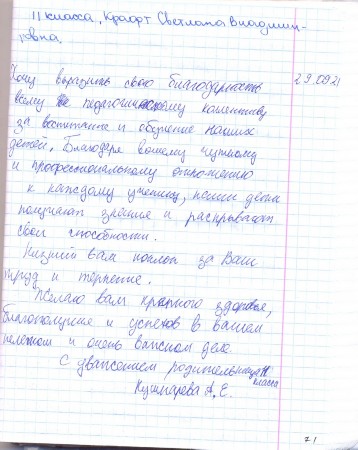 11 класса, Крафт Светлана Владимировна.
Хочу выразить свою благодарность 29.09.21
всему педагогическому коллективу
за воспитание и обучение наших
детей. Благодаря вашему чуткому
и профессиональному отношению
к каждому ученику, наши дети
получают знания и раскрывают
свои способности.
Низкий вам поклон за Ваш
труд и терпение.
Желаю вам крепкого здоровья,
благополучия и успехов в вашем
нелегком и очень важном деле.
С уважением родительница 11 класса
Кушнарева А. Е.
71